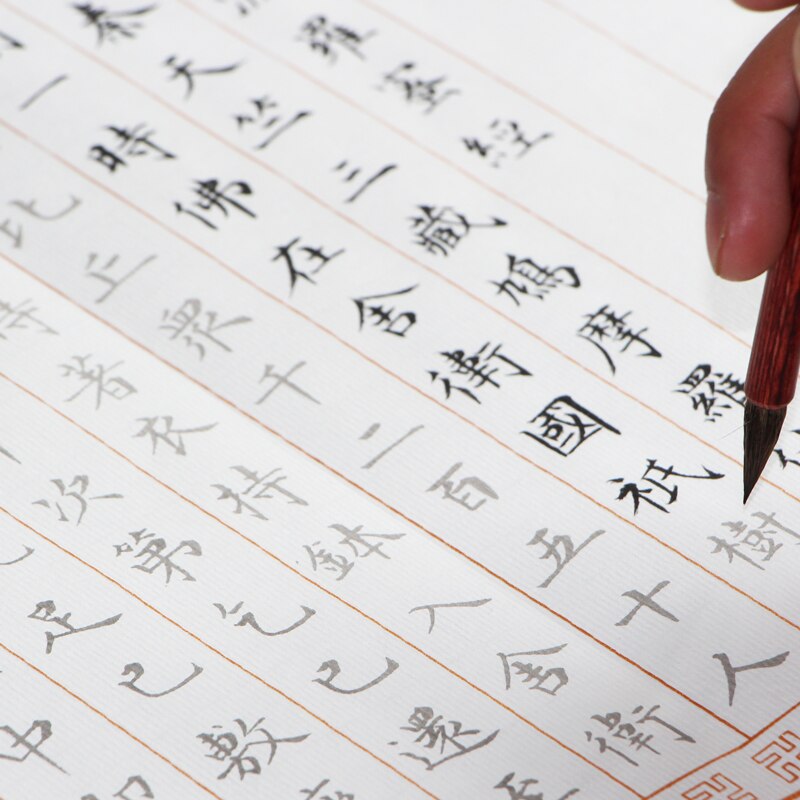 羅蜜經
秦天竺三藏鳩摩羅
一時佛在舍衛國祇樹
比丘眾千二百五十人
時著衣持鉢入舍衛
次第乞已還至
足已敷
中即